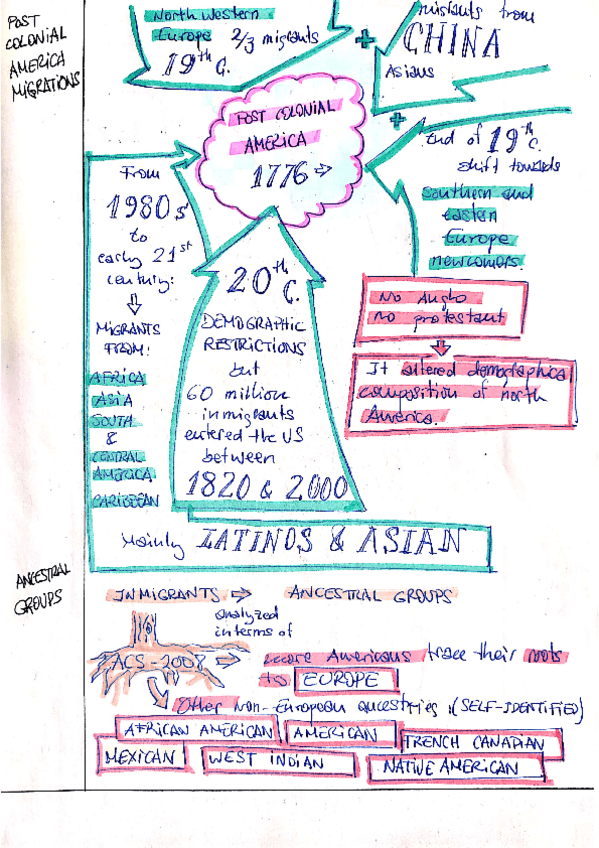 POST
COLONIAL
AMERICA
MIGRATIONS
North Western
Europe 2/3 migrants
19th C.
+
migrants from
CHINA
Asians
POST COLONIAL
AMERICA
1776 ⇨
+
End of 19th C.
shift towards
Southern and
eastern
Europe
newcomers.
No Anglo
no protestant
It altered demographica
composition of north
America.
From
1980s
to
early 21st
century:
MIGRANTS
FROM:
AFRICA
ASIA
SOUTH
&
CENTRAL
AMERICA
CARIBEEAN
20th C.
DEMOGRAPHIC
RESTRICTIONS
but
60 million
inmigrants
entered the US
between
1820 & 2000
Mainly LATINOS & ASIAN
ANCESTRAL
GROUPS
INMIGRANTS ⇨ ANCESTRAL GROUPS
analyzed
in terms of
ACS-2008 ⇨ more Americans trace their roots
to EUROPE
Other non-European ancestries :(SELF-IDENTIFIED)
AFRICAN AMERICAN AMERICAN FRENCH CANADIAN
MEXICAN WEST INDIAN NATIVE AMERICAN